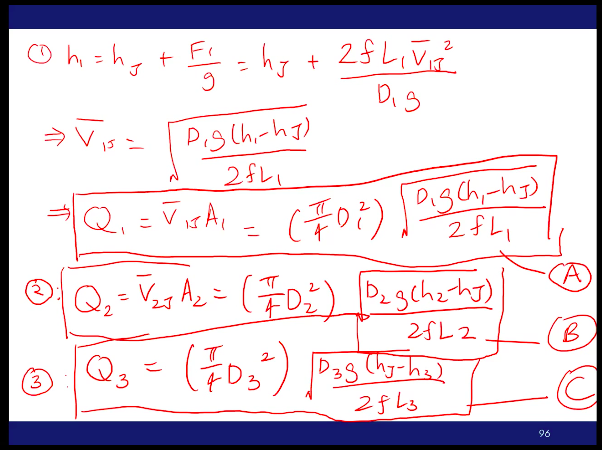 ① h₁ = h_J + F₁/g = h_J + 2fL₁V̄₁J²/D₁g
⇒ V̄₁J = √(D₁g(h₁-h_J)/2fL₁)
⇒ Q₁ = V̄₁J A₁ = (π/4 D₁²) √(D₁g(h₁-h_J)/2fL₁) Ⓐ
②: Q₂ = V̄₂J A₂ = (π/4 D₂²) √(D₂g(h₂-h_J)/2fL₂) Ⓑ
③: Q₃ = (π/4 D₃²) √(D₃g(h_J-h₃)/2fL₃) Ⓒ
96